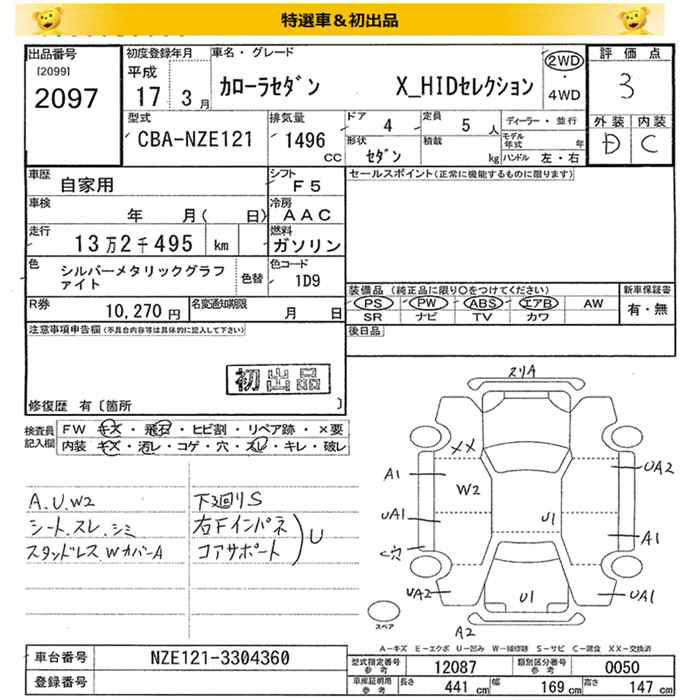 特選車＆初出品
出品番号 [2099] 2097
初度登録年月 平成 17年 3月
車名・グレード カローラセダン X_HIDセレクション
2WD・4WD
評価点 3
外装 D 内装 C
型式 CBA-NZE121
排気量 1496 CC
ドア 4 定員 5人
形状 セダン 積載 kg
ディーラー・並行
モデル年式 年
ハンドル 左・右
車歴 自家用
シフト F5
車検 年 月( 日)
冷房 AAC
走行 13万2千495 km
燃料 ガソリン
色 シルバーメタリックグラファイト 色替
色コード 1D9
R券 10,270円
名変通知期限 月 日
セールスポイント(正常に機能するものに限ります)
装備品(純正品に限り○をつけてください)
PS PW ABS エアB AW
SR ナビ TV カワ
新車保証書 有・無
後日品
注意事項申告欄(不具合内容等は具体的に記入して下さい)
初出品
修復歴 有〔箇所 〕
検査員記入欄
FW キズ・飛石・ヒビ割・リペア跡・×要
内装 キズ・汚レ・コゲ・穴・スレ・キレ・破レ
A.U.W2
シート.スレ.シミ
スタッドレス.WカバーA
下廻りS
右Fインパネ
コアサポート
U
スリA
XX
A1
W2
UA2
UA1
U1
A1
穴
UA2
U1
UA1
A2
スペア
A-キズ E-エクボ U-凹み W-補修跡 S-サビ C-腐食 XX-交換済
車台番号 NZE121-3304360
登録番号
型式指定番号 参考 12087
類別区分番号 参考 0050
車庫証明用 参考 長さ 441cm 幅 169cm 高さ 147cm